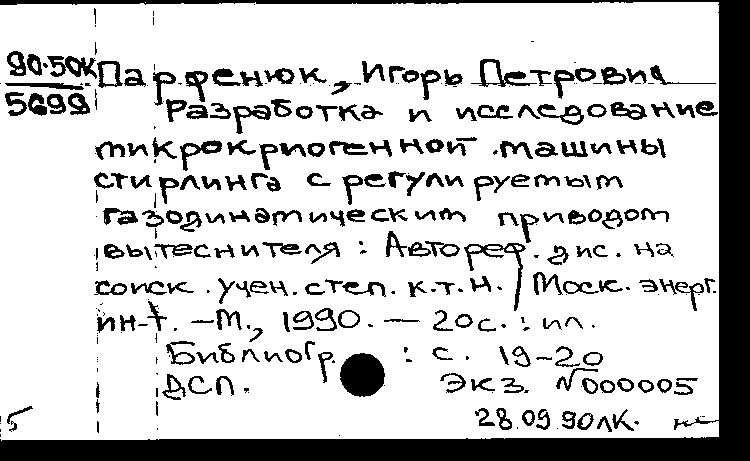 90-50К
5699
Парфенюк, Игорь Петрович
Разработка и исследование
микрокриогенной машины
стирлинга с регулируемым
газодинамическим приводом
вытеснителя : Автореф. дис. на
соиск. учен. степ. к.т.н. / Моск. энерг.
ин-т. – М., 1990. – 20с. : ил.
Библиогр. : с. 19-20
ДСП. Экз. №000005
28.09.90ЛК.
5